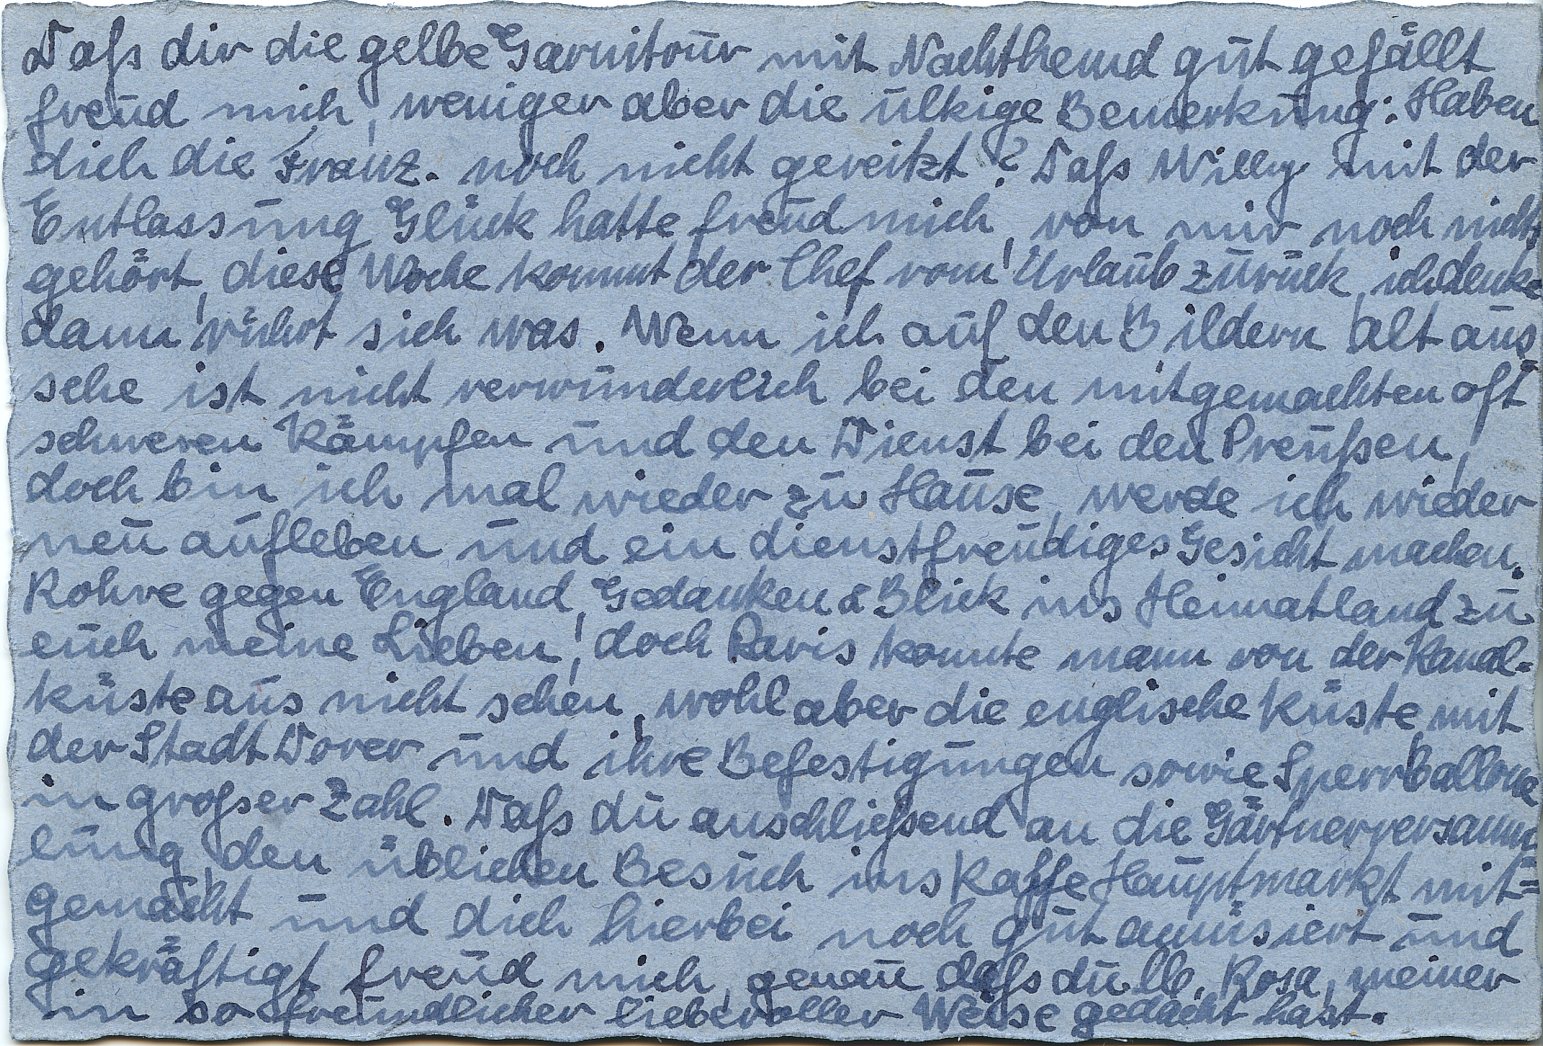 Daß dir die gelbe Garnitour mit Nachthemd gut gefällt
freud mich, weniger aber die ulkige Bemerkung: Haben
dich die Franz. noch nicht gereitzt? Daß Willy mit der
Entlassung Glück hatte freud mich, von mir noch nichts
gehört, diese Woche kommt der Chef vom Urlaub zurück, ich denke
dann rührt sich was. Wenn ich auf den Bildern alt aus
sehe ist nicht verwunderlich bei den mitgemachten oft
schweren Kämpfen und den Dienst bei den Preußen,
doch bin ich mal wieder zu Hause, werde ich wieder
neu aufleben und ein dienstfreudiges Gesicht machen.
Rohre gegen England, Gedanken & Blick ins Heimatland zu
euch meine Lieben, doch Paris konnte mann von der Kanal-
küste aus nicht sehen, wohl aber die englische Küste mit
der Stadt Dover und ihre Befestigungen sowie Sperrballone
in großer Zahl. Daß du anschließend an die Gärtnerversamm
lung den üblichen Besuch ins Kaffe Hauptmarkt mit=
gemacht und dich hierbei noch gut amüsiert und
gekräftigt freud mich, genau daß du lb. Rosa, meiner
in so freundlicher liebevoller Weise gedacht hast.